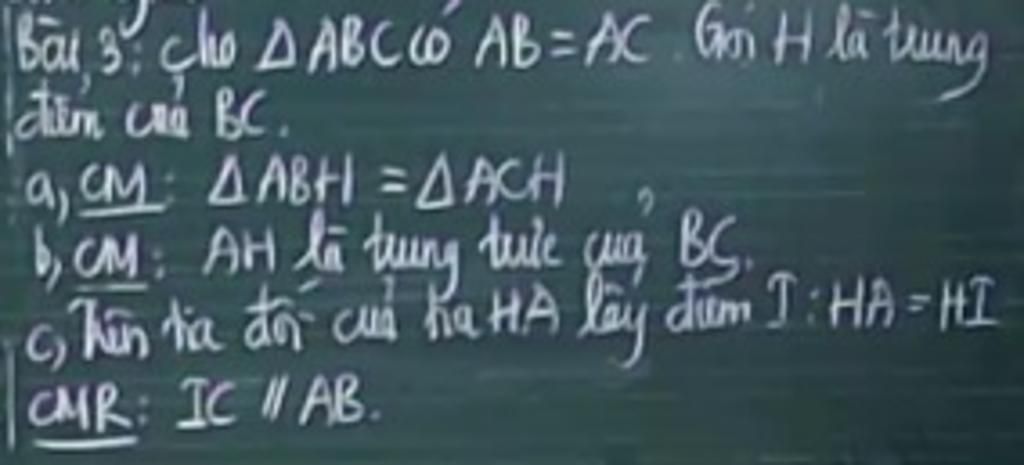 Bài 3: Cho Δ ABC có AB = AC. Gọi H là trung
điểm của BC.
a, CM: Δ ABH = Δ ACH
b, CM: AH là trung trực của BC.
c, Trên tia đối của tia HA lấy điểm I : HA = HI
CMR: IC // AB.